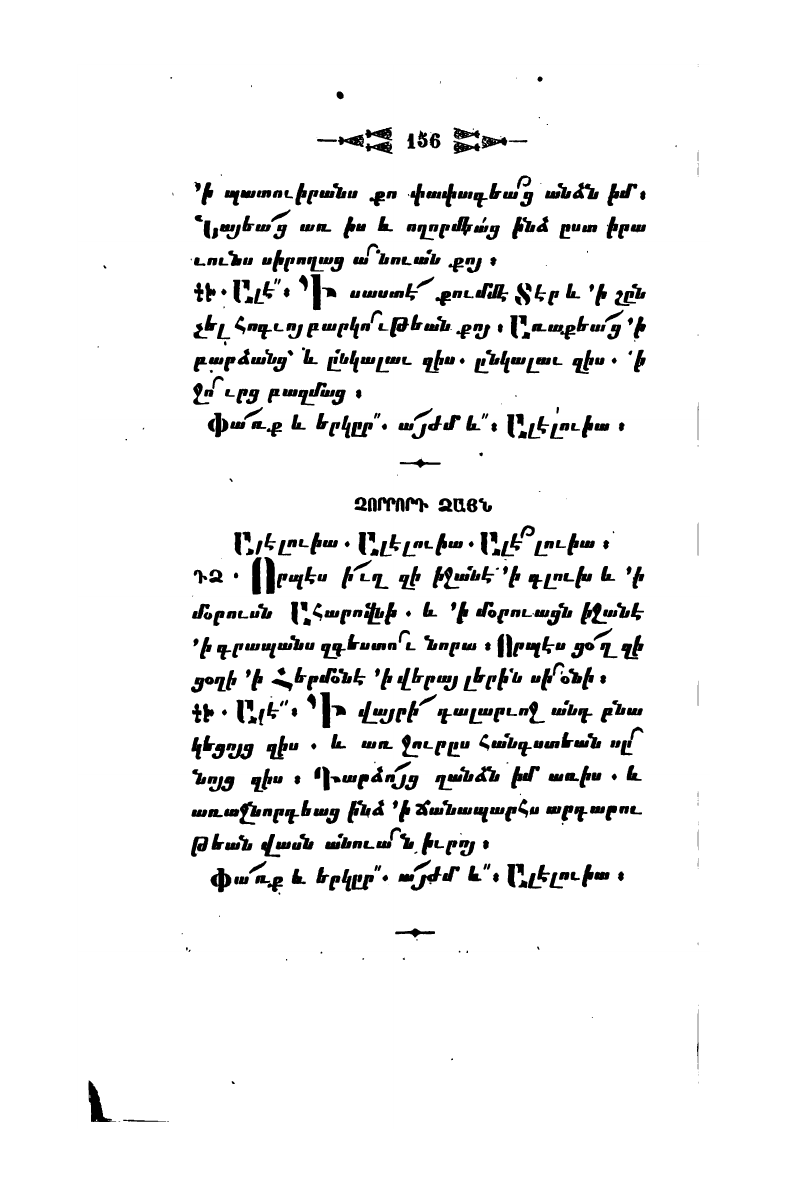 156
՚ի պատուիրանս քո փափագեա՟ց անձն իմ ։
Նայեա՛ց առ իս և ողորմեա՛ց ինձ ըստ իրա
ւունս սիրողաց ա՟նուան քոյ ։
ՔԿ · Ալէ՞՞։ ՚Ի սաստէ՛ քումմէ Տէր և ՚ի շըն
չել Հոգւոյ բարկո՟ւթեան քոյ ։ Առաքեա՛ց ՚ի
բարձանց՝ և ընկալաւ զիս · ընկալաւ զիս · ՚ի
ջո՟ւրց բազմաց ։
Փա՛ռք և երկըր՞՞· ա՛յժմ և՞՞։ Ալէլուիա ։
ՉՈՐՐՈՐԴ ՁԱՅՆ
Ալէլուիա · Ալէլուիա · Ալէ՟լուիա ։
ԴՁ · Որպէս ի՛ւղ զի իջանէ ՚ի գլուխ և ՚ի
մօրուսն Ահարովնի · և ՚ի մօրուացն իջանէ
՚ի գրապանս զգեստո՟ւ նորա ։ Որպէս ցօ՛ղ զի
ցօղի ՚ի Հերմօնէ ՚ի վերայ լերին սի՟օնի ։
ՔԿ · Ալէ՞՞։ ՚Ի վայրի՛ դալարւոջ անդ բնա
կեցոյց զիս · և առ ջուրըս հանգստեան սը՟
նոյց զիս ։ Դարձո՛յց զանձն իմ առիս · և
առաջնորդեաց ինձ ՚ի ճանապարհս արդարու
թեան վասն անուա՟ն իւրոյ ։
Փա՛ռք և երկըր՞՞· ա՛յժմ և՞՞։ Ալէլուիա ։